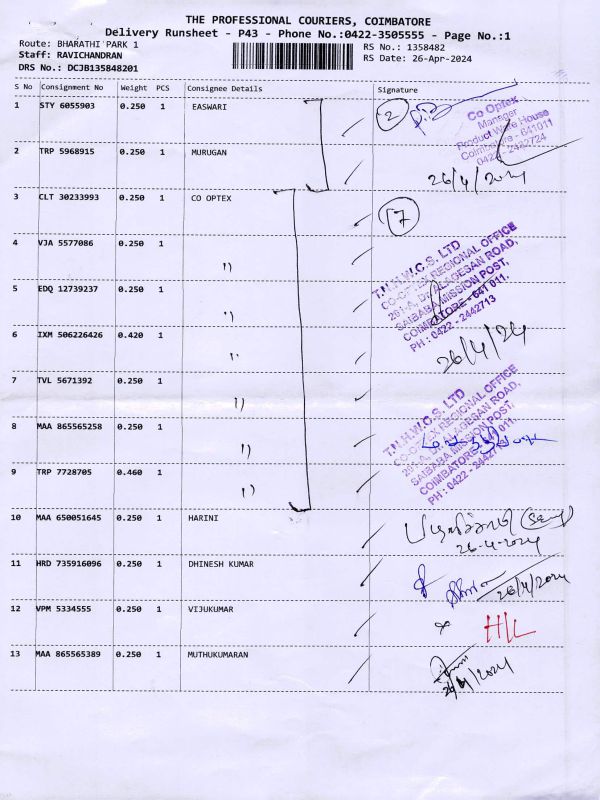 THE PROFESSIONAL COURIERS, COIMBATORE
Delivery Runsheet - P43 - Phone No.:0422-3505555 - Page No.:1
Route: BHARATHI PARK 1 RS No.: 1358482
Staff: RAVICHANDRAN RS Date: 26-Apr-2024
DRS No.: DCJB135848201
S No Consignment No Weight PCS Consignee Details Signature
1 STY 6055903 0.250 1 EASWARI 2
Co Optex
Manager
Product Ware House
Coimbatore - 641011
0422 - 2442724
2 TRP 5968915 0.250 1 MURUGAN
26/4/2024
3 CLT 30233993 0.250 1 CO OPTEX 7
4 VJA 5577086 0.250 1 "
T.N.H.W.C.S. LTD
CO-OPTEX REGIONAL OFFICE
ALAGESAN ROAD,
SAIBABA MISSION POST,
COIMBATORE - 641 011.
PH : 0422 - 2442713
5 EDQ 12739237 0.250 1 "
6 IXM 506226426 0.420 1 "
26/4/24
7 TVL 5671392 0.250 1 "
T.N.H.W.C.S. LTD
CO-OPTEX REGIONAL OFFICE
ALAGESAN ROAD,
SAIBABA MISSION POST,
COIMBATORE 011.
PH : 0422 -
8 MAA 865565258 0.250 1 "
9 TRP 7728705 0.460 1 "
10 MAA 650051645 0.250 1 HARINI
26-4-2024
11 HRD 735916096 0.250 1 DHINESH KUMAR
26/4/2024
12 VPM 5334555 0.250 1 VIJUKUMAR H/L
13 MAA 865565389 0.250 1 MUTHUKUMARAN
26/4/2024